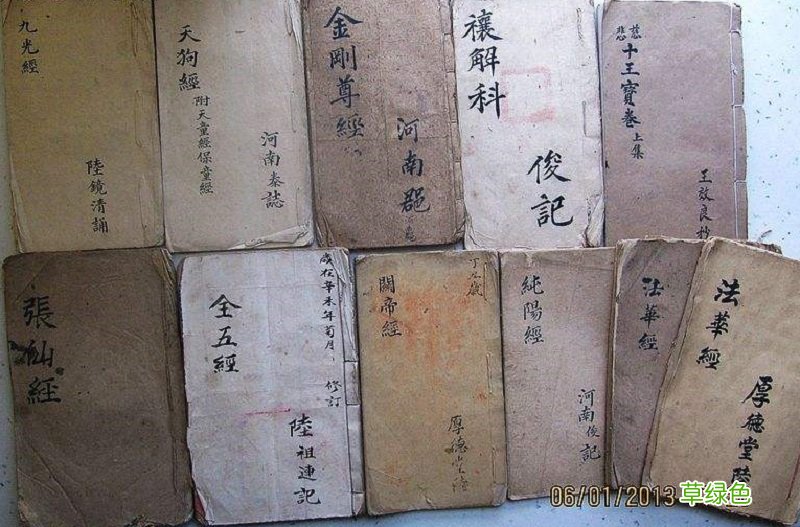 九光經
陸鏡清誦
天狗經
附天童經保童經
河南泰誌
金剛尊經
河南郡
禳解科
俊記
慈悲
十王寶卷上集
王效良抄
張仙經
歲在辛未年菊月
修訂
全五經
陸祖連記
關帝經
厚德堂陸
純陽經
河南俊記
法華經
法華經
厚德堂陸
06/01/2013
草绿色